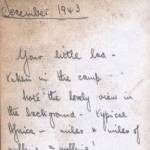 December 1943
Your little lad -
taken in the camp -
Note the lovely view in
the background - typical
Africa - miles & miles of
nothing & nothing!